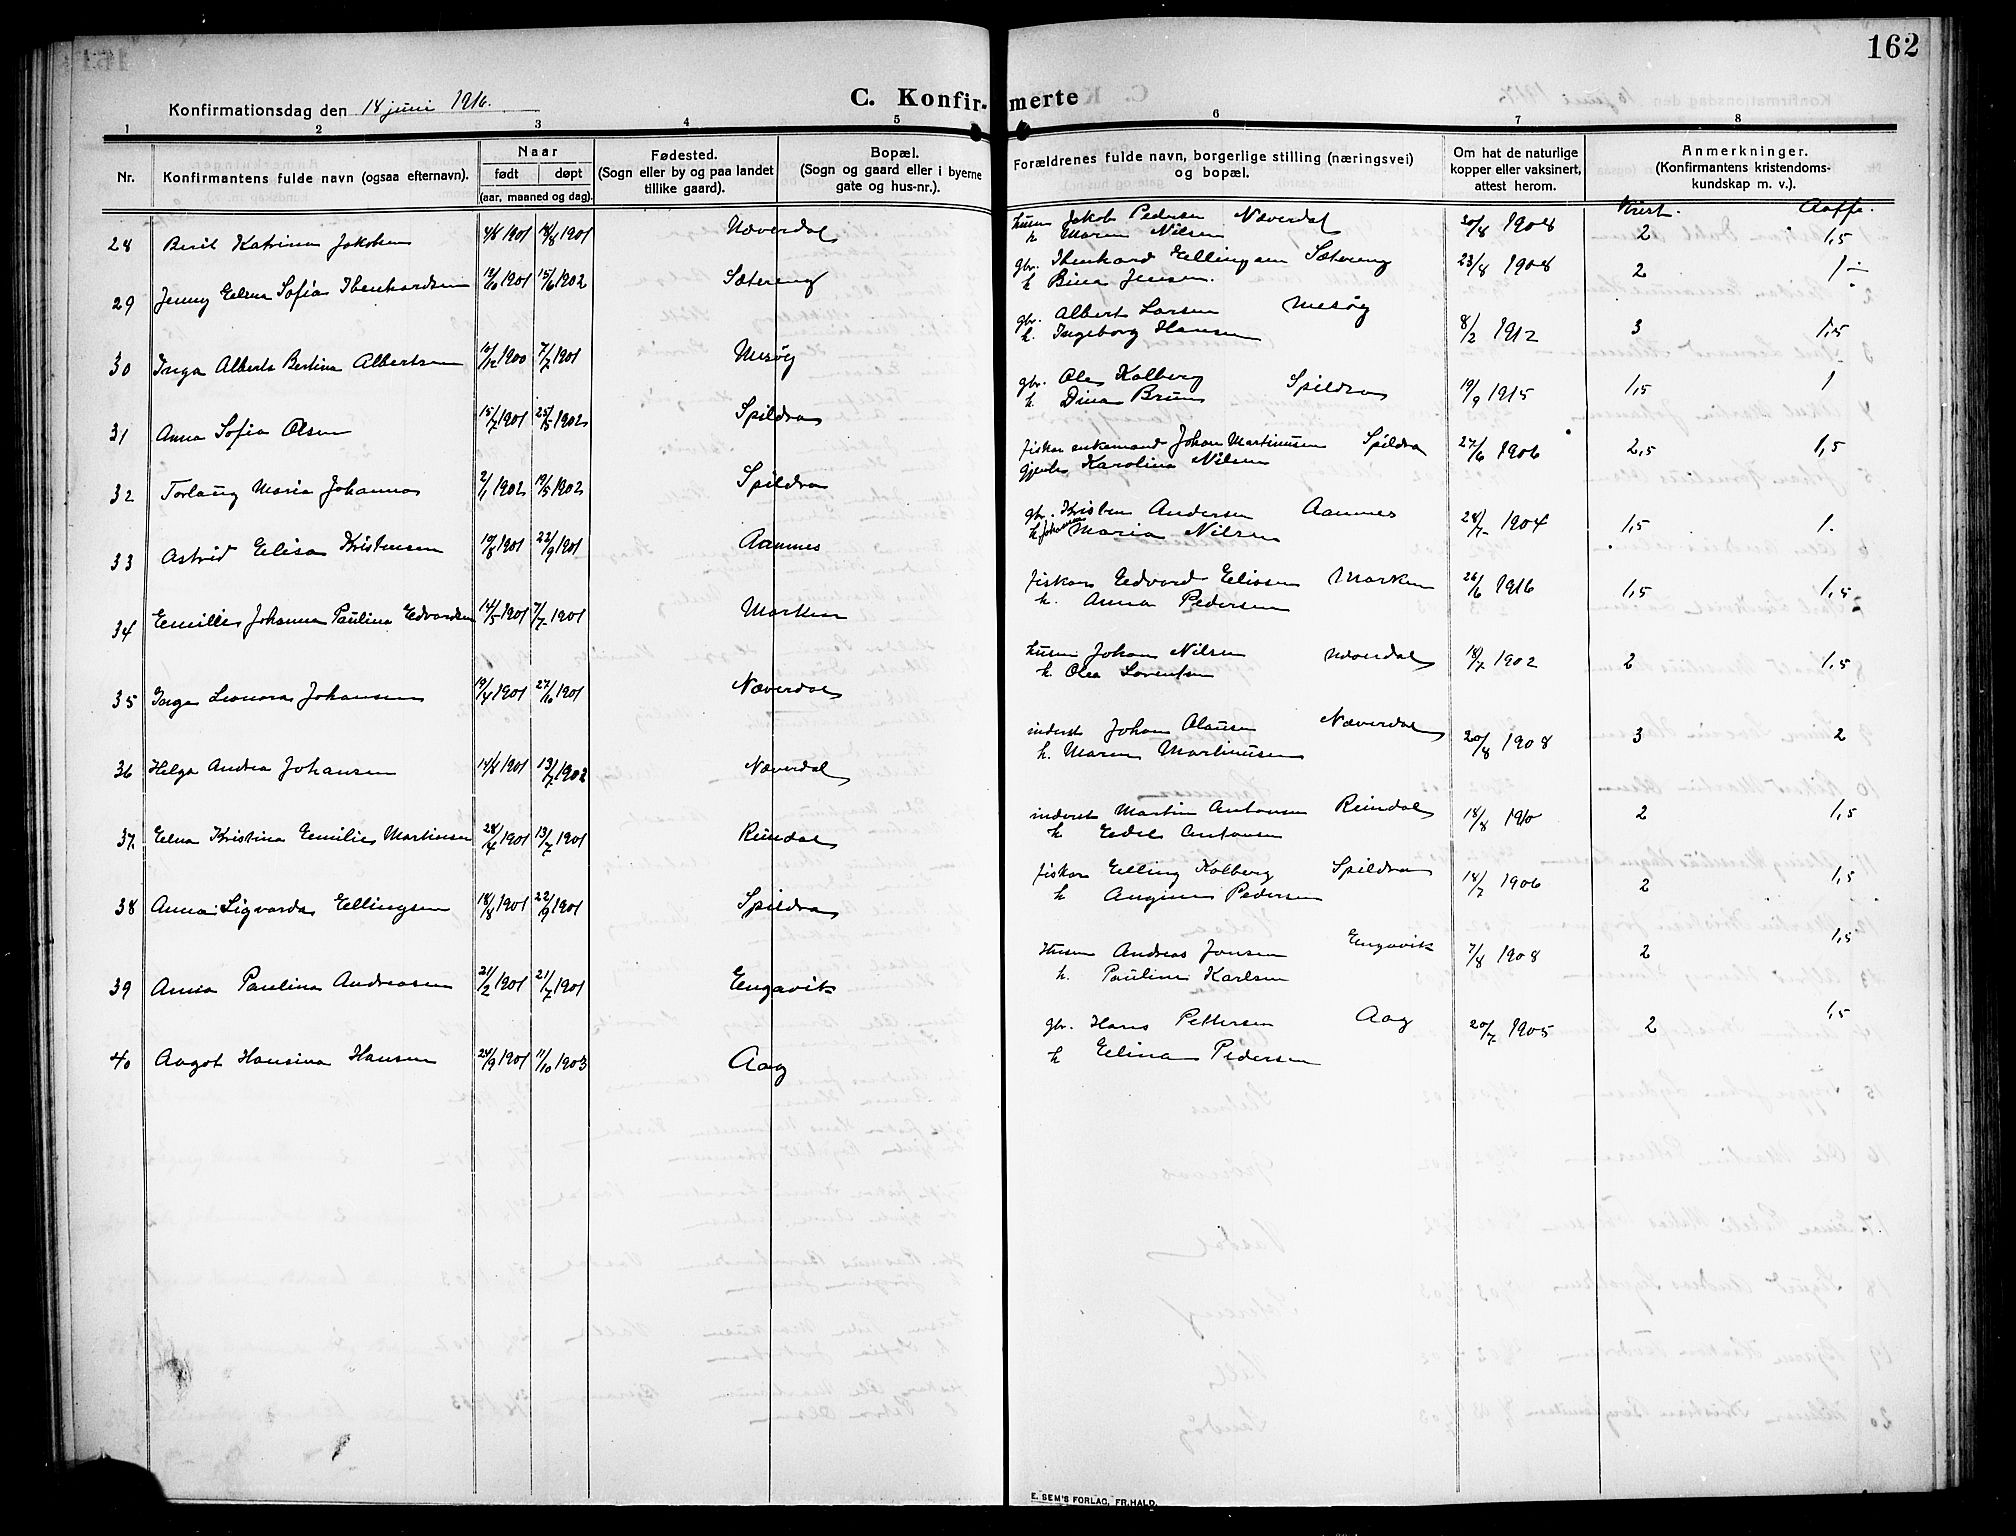 162
Konfirmationsdag den 18 juni 1916.
C. Konfirmerte
1 2 3 4 5 6 7 8
Nr.
Konfirmantens fulde navn (ogsaa efternavn).
Naar
født døpt
(aar, maaned og dag).
Fødested.
(Sogn eller by og paa landet
tillike gaard).
Bopæl.
(Sogn og gaard eller i byerne
gate og hus-nr.).
Forældrenes fulde navn, borgerlige stilling (næringsvei)
og bopæl.
Om hat de naturlige
kopper eller vaksinert,
attest herom.
Anmerkninger.
(Konfirmantens kristendoms-
kundskap m. v.).
28 Berit Katrina Jakobsen 4/8 1901 18/8 1901 Næverdal husm Jakob Pedersen Næverdal 30/8 1908 2 1,5
h. Maren Nilsen
29 Jenny Elena Sofia Ibenhardsen 12/10 1901 15/6 1902 Sætereng gbr. Ibenhard Ellingsen Sætereng 23/8 1908 2 1
h Bina Jensen.
30 Inga Alberta Bertina Albertsen 10/12 1900 7/7 1901 Mesøy gbr. Albert Larsen Mesøy 8/2 1912 3 1,5
h. Ingeborg Hansen
31 Anna Sofia Olsen 15/7 1901 25/5 1902 Spildra gbr. Ole Kolberg Spildra 19/9 1915 1,5 1
h. Dina Bruun
32 Torlaug Maria Johannes 2/1 1902 19/5 1902 Spildra fisker enkemand Johan Martinusen Spildra 27/6 1906 2,5 1,5
Karolina Nilsen
33 Astrid Elisa Kristensen 10/8 1901 22/9 1901 Aamnes gbr. Kristen Andersen Aamnes 28/7 1904 1,5 1.
h. Maria Nilsen
34 Emilie Johanna Paulina Edvardsen 14/5 1901 7/7 1901 Marken fisker Edvard Eliasen Marken 26/6 1916 1,5 1,5
h. Anna Pedersen
35 Inga Leonora Johansen 19/4 1901 27/10 1901 Næverdal husm Johan Nilsen Næverdal 18/7 1902 2 1,5
h. Olea Lorentsen
36 Helga Andrea Johansen 14/8 1901 13/7 1902 Næverdal inderst Johan Olausen Næverdal 20/8 1908 3 2
h. Maren Martinusen
37 Elna Kristina Emilie Martinsen 28/4 1901 13/7 1901 Reindal inderst Martin Antonsen Reindal 18/8 1910 2 1,5
h Edel Antonsen
38 Anna Sigvarda Ellingsen 18/8 1901 22/9 1901 Spildra fisker Elling Kolberg Spildra 18/7 1906 2 1,5
h Angina Pedersen
39 Anna Paulina Andreasen 21/2 1901 21/7 1901 Engavik Husm Andreas Jensen Engavik 7/8 1908 2 1,5
h. Pauline Karlsen
40 Aagot Hansina Hansen 24/9 1901 11/10 1903 Aag gbr. Hans Pettersen Aag 20/7 1905 2 1,5
h Elina Pedersen
E. SEM'S FORLAG, FR.HALD.